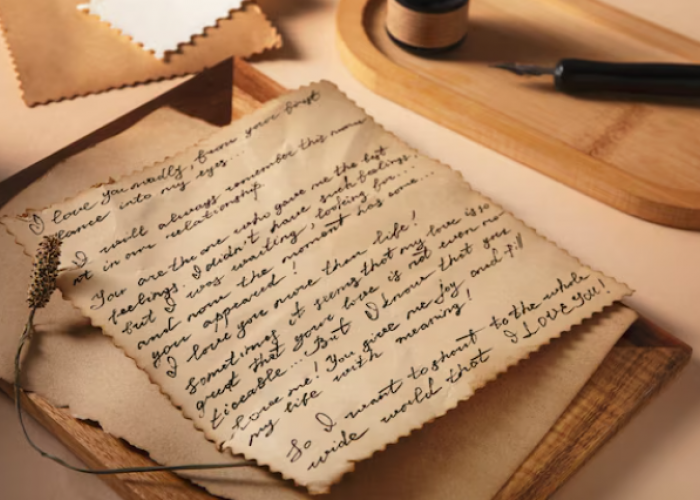 I love you madly, from your first
glance into my eyes...
I will always remember this mome
nt in our relationship.
You are the one who gave me the best
feelings. I didn't have such feelings.
but I was waiting, looking for...
and now the moment has come...
you appeared!
I love you more then life!
Sometimes it seems that my love is so
great that your love is not even no
ticeable... But I know that you
love me! You give me joy and fill
my life with meaning!
So I want to shout to the whole
wide world that I LOVE YOU!